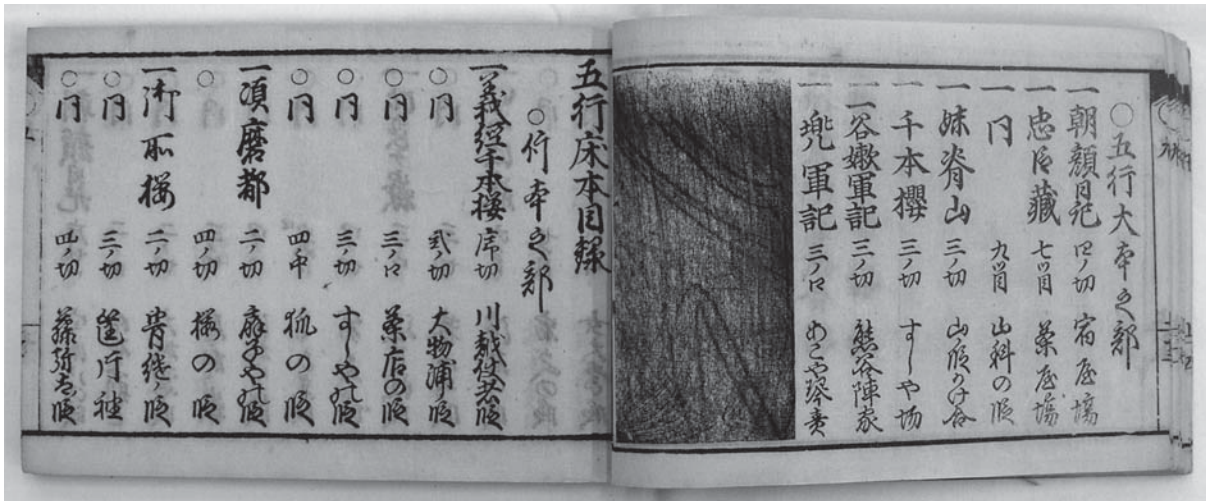 ○五行大本之部
一朝顔日記 四ノ切 宿屋場
一忠臣藏 七ツ目 茶屋場
一同 九ツ目 山科の段
一妹脊山 三ノ切 山段かけ合
一千本櫻 三ノ切 すしや場
一一谷嫩軍記 三ノ切 熊谷陣家
一兜軍記 三ノ口 あこや琴責
五行床本目録
○行本之部
一義經千本桜 序切 川越上使の段
○同 弐ノ切 大物浦ノ段
○同 三ノ口 茶店の段
○同 三ノ切 すしやの段
○同 四ノ中 狐の段
一須磨都 二ノ切 扇やの段
○ 四ノ切 桜の段
一御所桜 二ノ切 貫
○同 三ノ切
○同 四ノ切 藤弥太ノ段